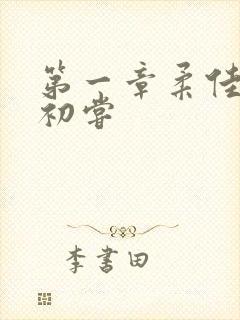 第一章柔佳
初尝
李书田